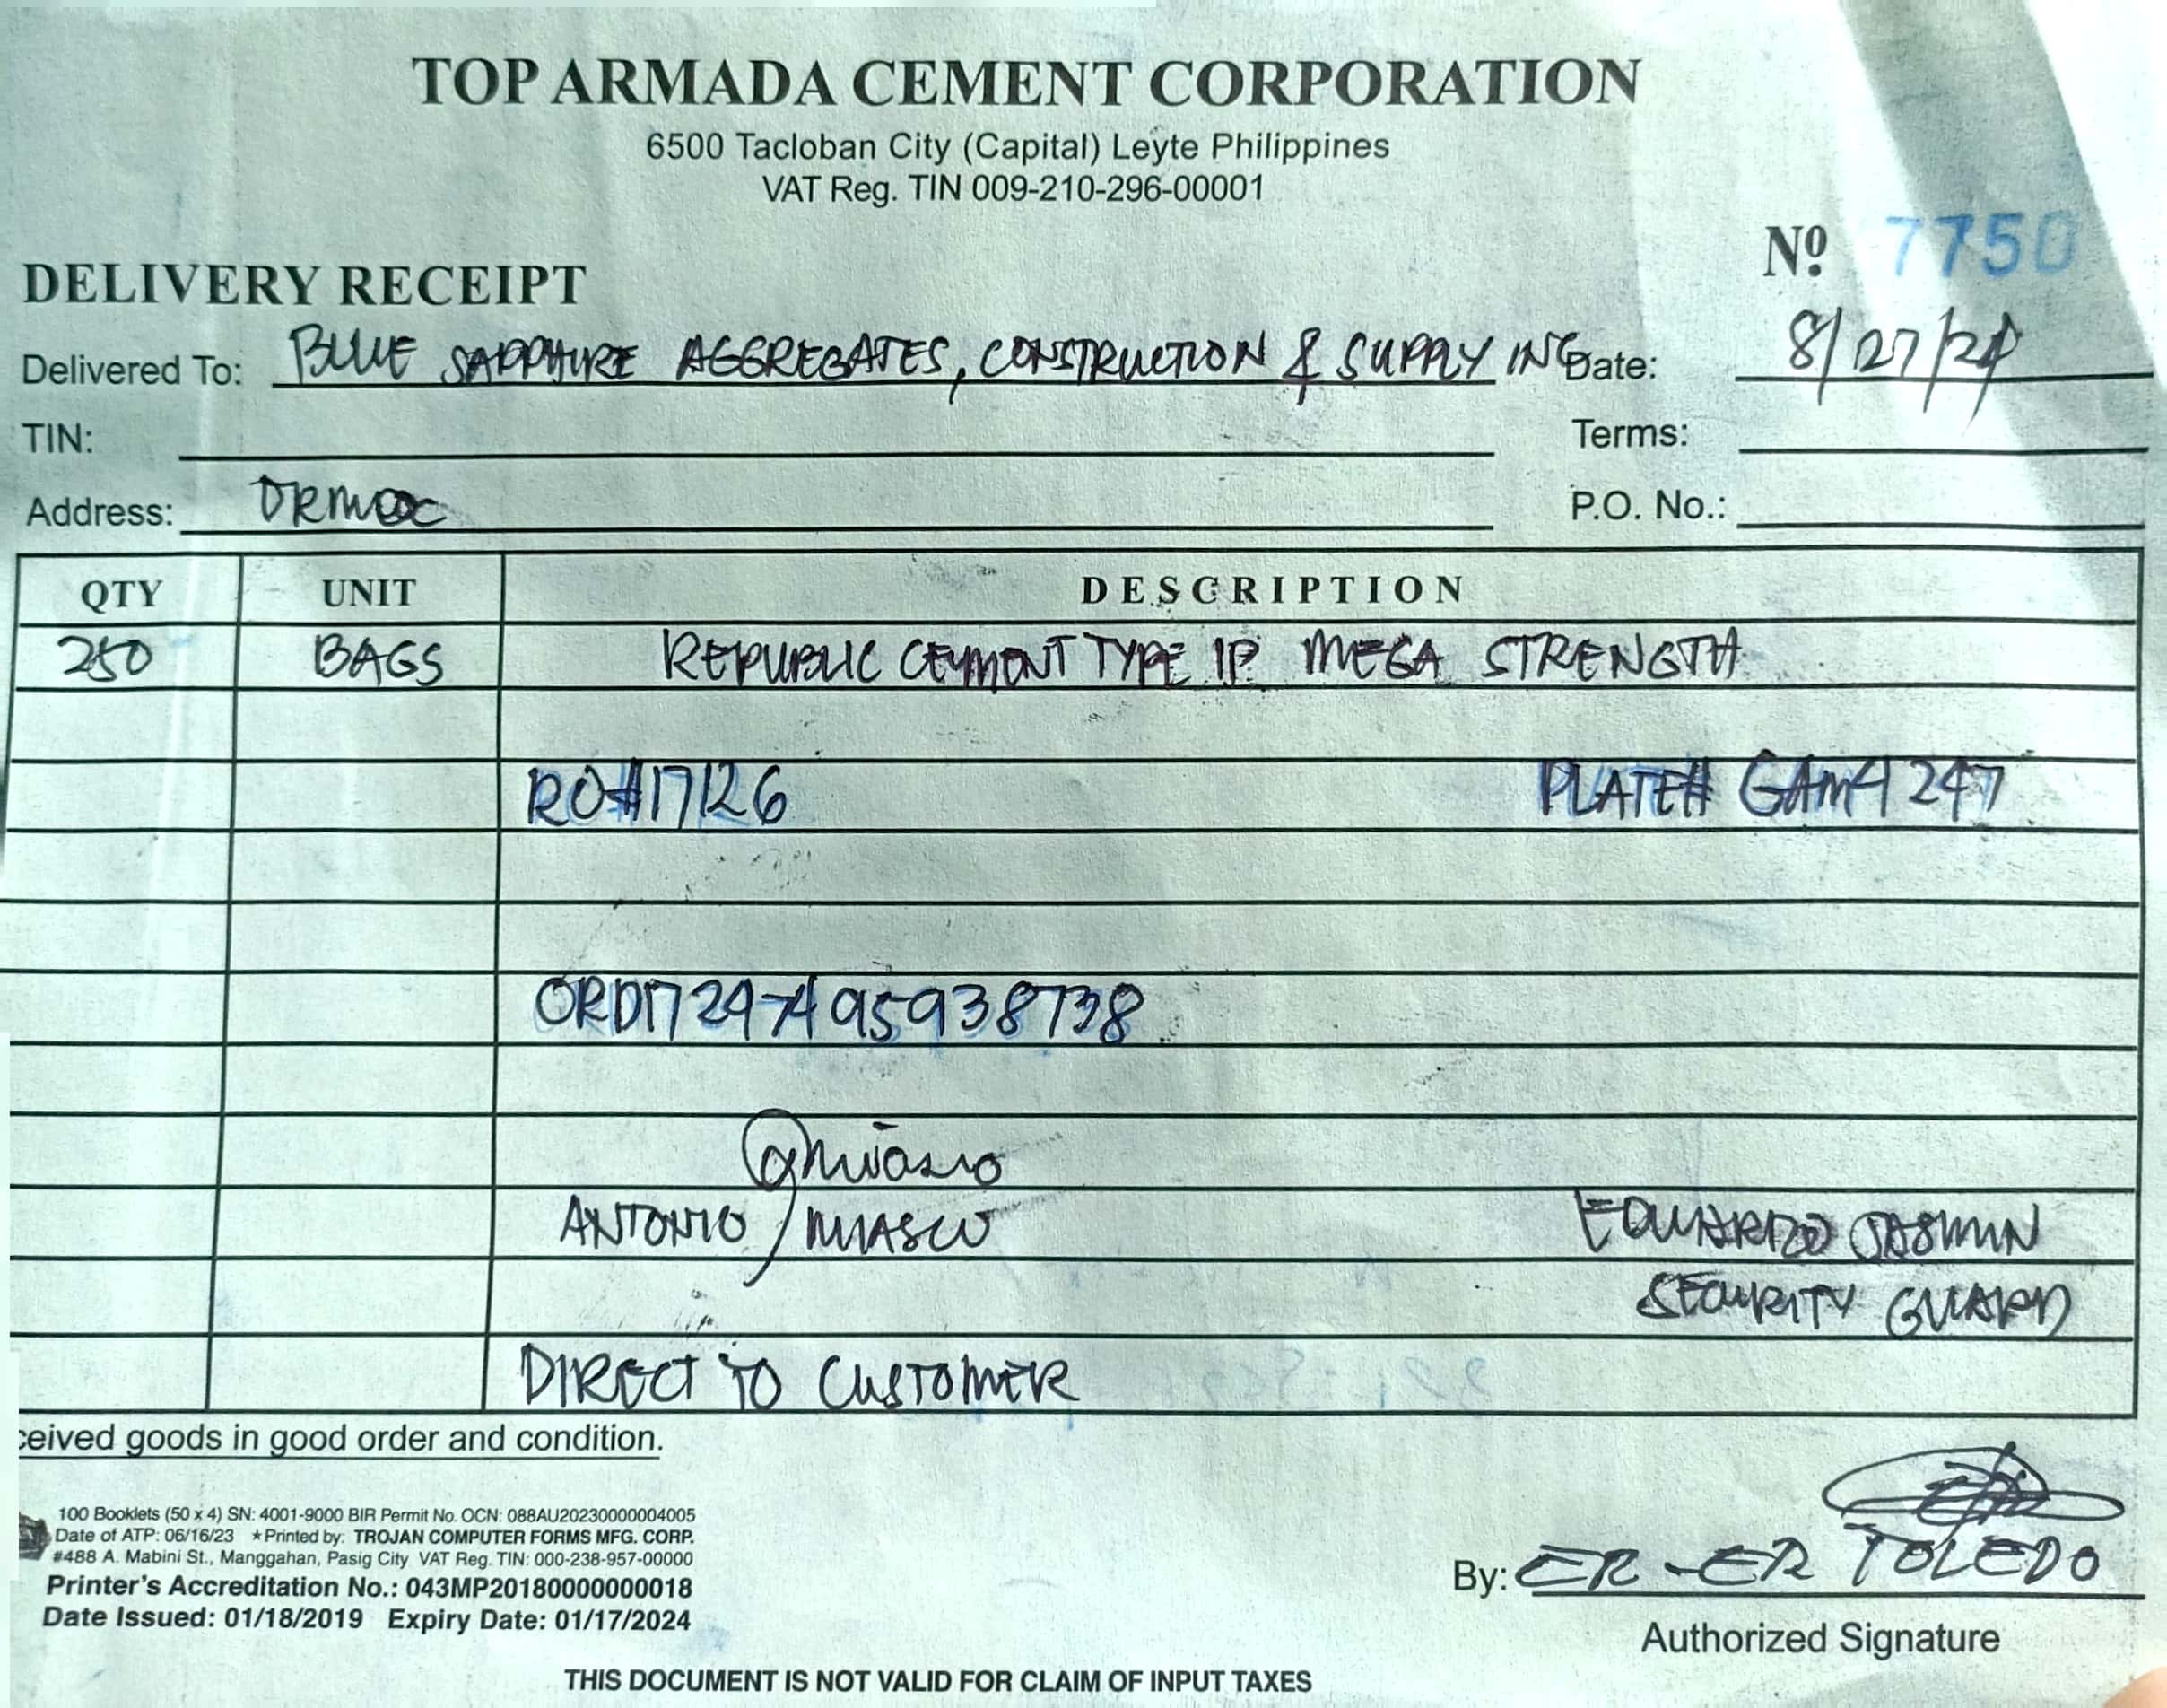 TOP ARMADA CEMENT CORPORATION
6500 Tacloban City (Capital) Leyte Philippines
VAT Reg. TIN 009-210-296-00001
Nº 7750
DELIVERY RECEIPT
Delivered To: BLUE SAPPHIRE AGGREGATES, CONSTRUCTION & SUPPLY INC Date: 8/27/24
TIN: Terms:
Address: ORMOC P.O. No.:
QTY UNIT DESCRIPTION
250 BAGS REPUBLIC CEMENT TYPE 1P MEGA STRENGTH
RO#17126 PLATE# GAM4247
ORD17247495938738
ANTONIO MIASCO EDUARDO JASMIN
SECURITY GUARD
DIRECT TO CUSTOMER
ceived goods in good order and condition.
100 Booklets (50 x 4) SN: 4001-9000 BIR Permit No. OCN: 088AU20230000004005
Date of ATP: 06/16/23 ★Printed by: TROJAN COMPUTER FORMS MFG. CORP.
#488 A. Mabini St., Manggahan, Pasig City VAT Reg. TIN: 000-238-957-00000
Printer's Accreditation No.: 043MP20180000000018
Date Issued: 01/18/2019 Expiry Date: 01/17/2024
By: ER-ER TOLEDO
Authorized Signature
THIS DOCUMENT IS NOT VALID FOR CLAIM OF INPUT TAXES